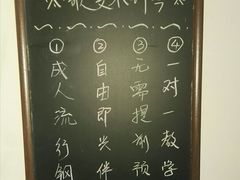 ①成人流行钢
②自由即兴伴
③无需提前预
④一对一教学